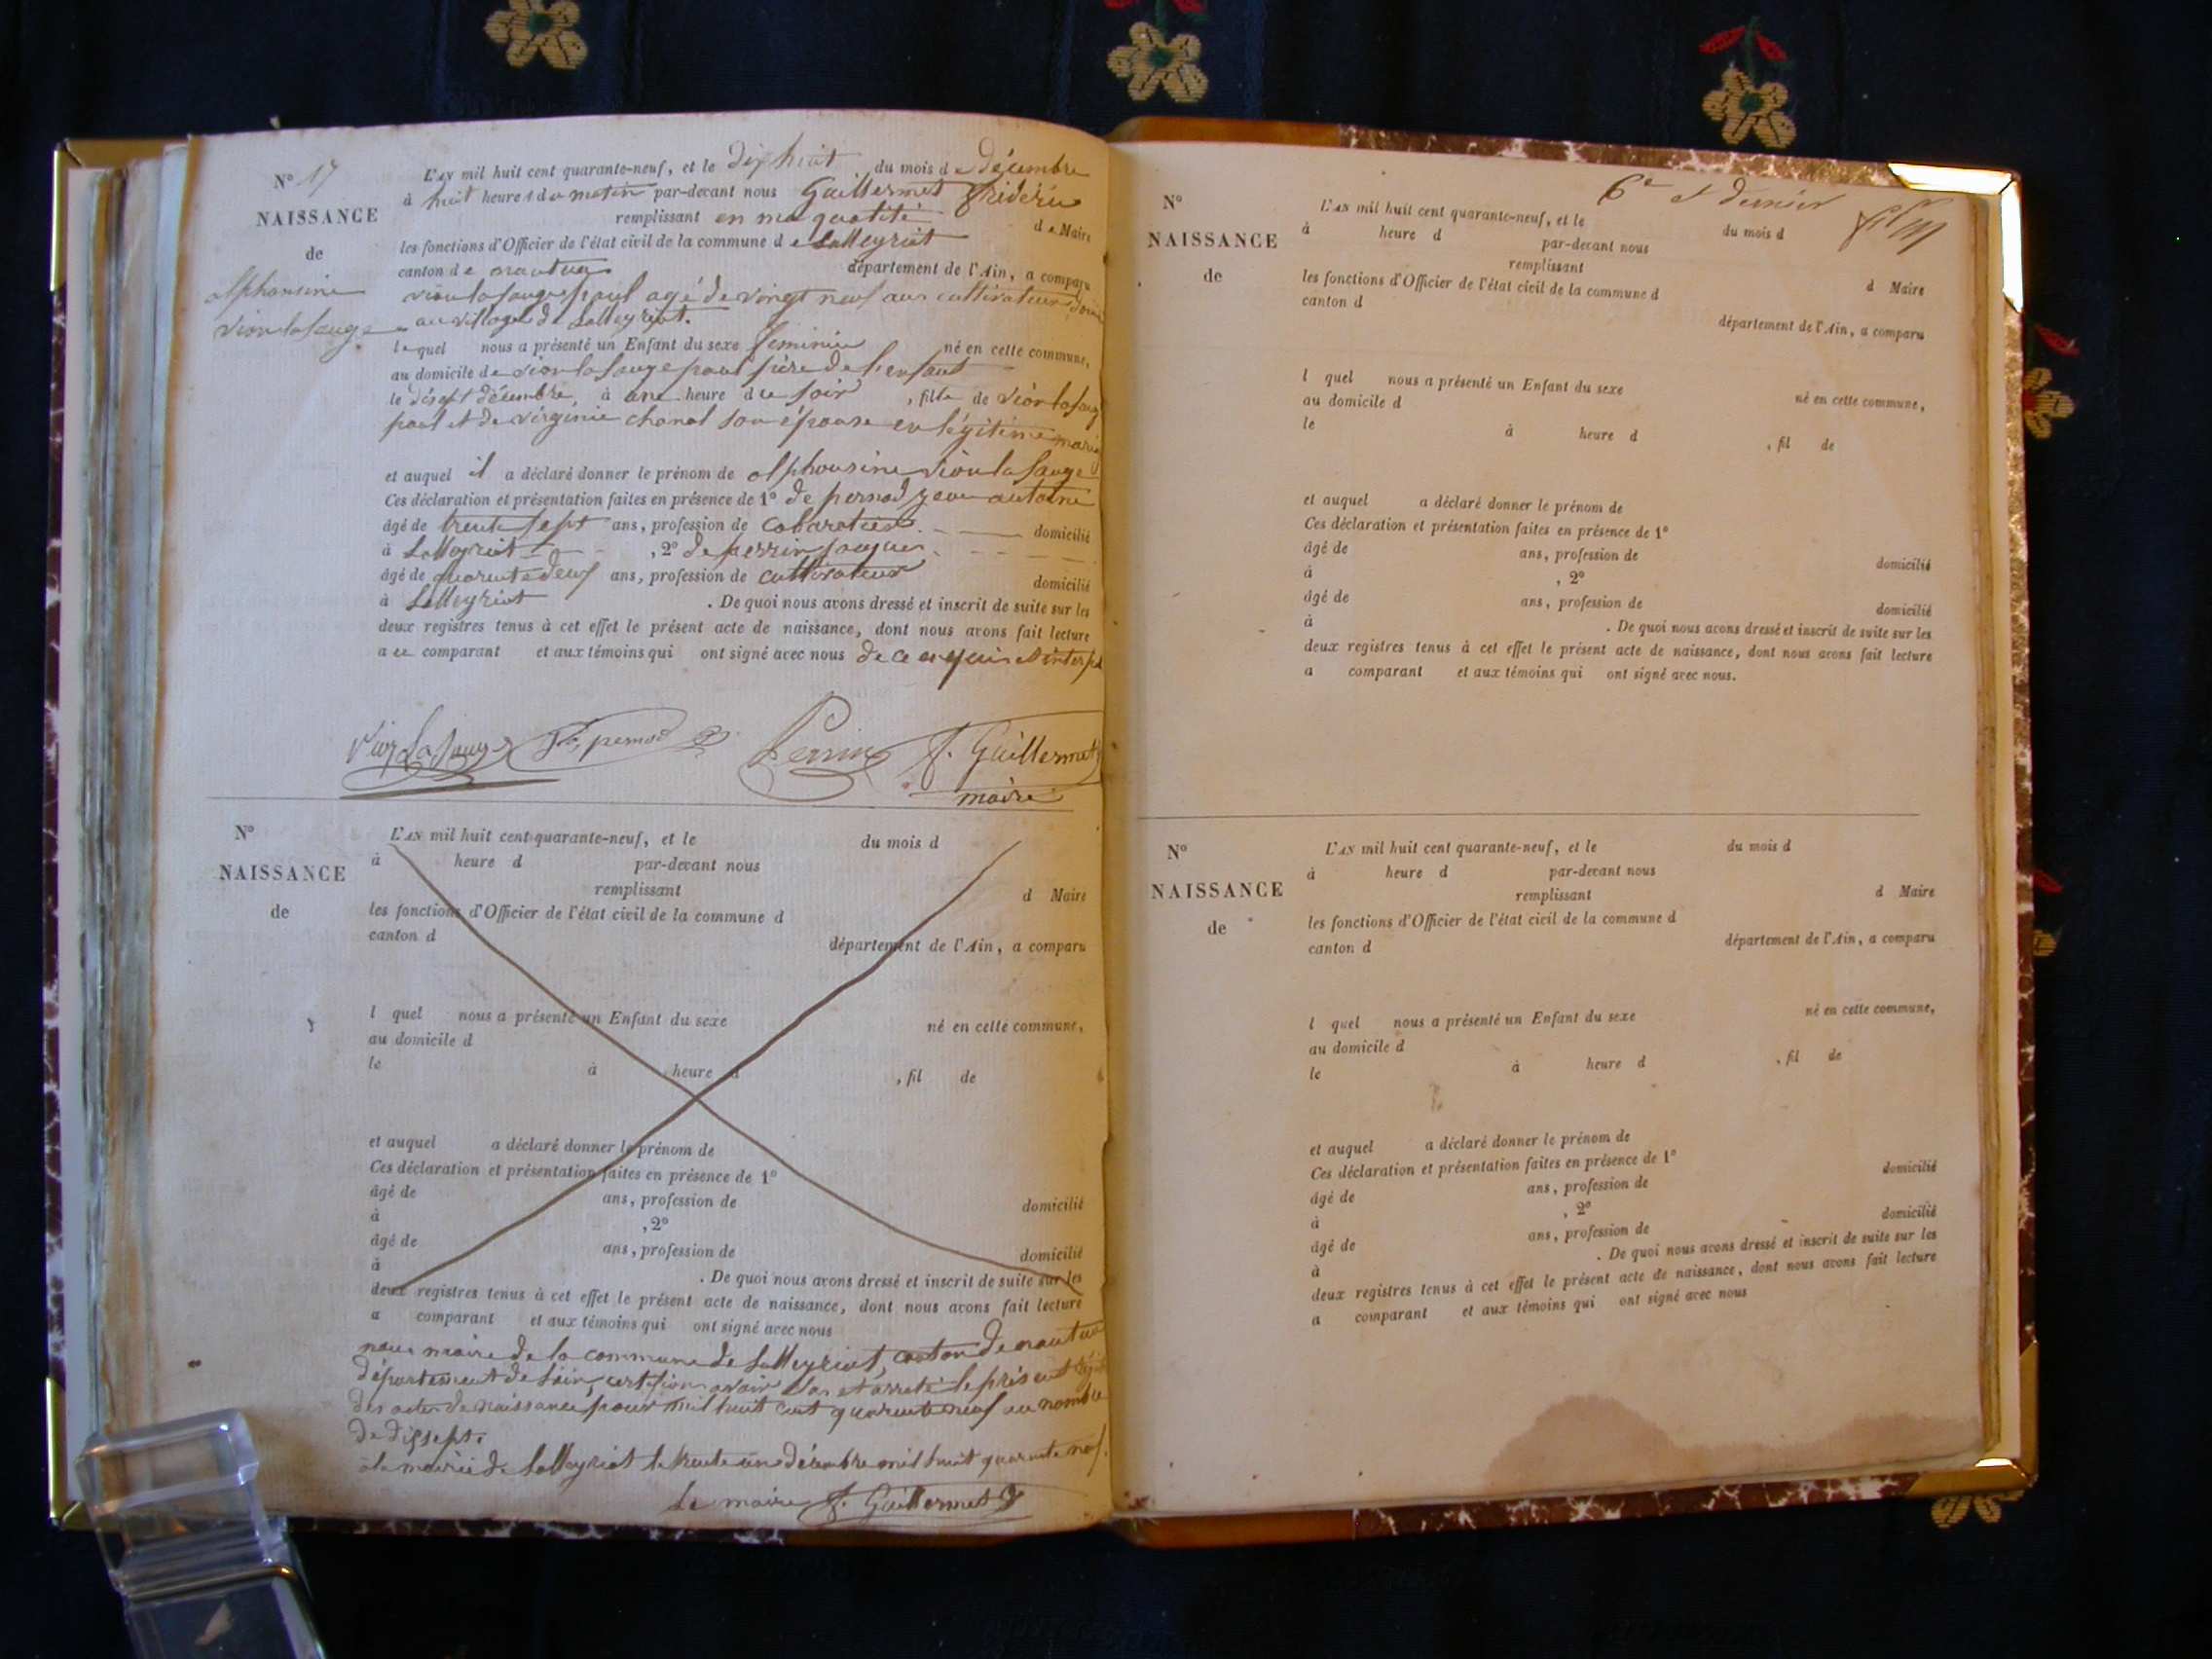 N° 17
NAISSANCE
de
alphonsine
vion la fauge
L'AN mil huit cent quarante-neuf, et le dixhuit du mois de décembre
à huit heures du matin par-devant nous Guillermet fridéric
remplissant en ma qualité de Maire
les fonctions d'Officier de l'état civil de la commune de Lalleyriat
canton de nantua département de l'Ain, a comparu
vion la fauge paul agé de vingt neuf ans cultivateur
au village de Lalleyriat.
lequel nous a présenté un Enfant du sexe féminin né en cette commune,
au domicile de vion la fauge paul père de l'enfant
le diseft décembre, à une heure du soir, fille de vion la faug
paul et de virginie chanal son épouse en légitime
et auquel il a déclaré donner le prénom de alphonsine vion la fauge
Ces déclaration et présentation faites en présence de 1° de pernod jean antoine
âgé de trente sept ans, profession de cabaretier domicilié
à Lalleyriat, 2° de perrin jacques
âgé de quarente deux ans, profession de cultivateur domicilié
à Lalleyriat. De quoi nous avons dressé et inscrit de suite sur les
deux registres tenus à cet effet le présent acte de naissance, dont nous avons fait lecture
a ce comparant et aux témoins qui ont signé avec nous de ce requis et
Vion La fauge pernod Perrin f. Guillermet
maire
N°
NAISSANCE
de
L'AN mil huit cent quarante-neuf, et le du mois d
à heure d par-devant nous
remplissant d Maire
les fonctions d'Officier de l'état civil de la commune d
canton d département de l'Ain, a comparu
l quel nous a présenté un Enfant du sexe né en cette commune,
au domicile d
le à heure d , fil de
et auquel a déclaré donner le prénom de
Ces déclaration et présentation faites en présence de 1°
âgé de ans, profession de domicilié
à , 2°
âgé de ans, profession de domicilié
à . De quoi nous avons dressé et inscrit de suite sur les
deux registres tenus à cet effet le présent acte de naissance, dont nous avons fait lecture
a comparant et aux témoins qui ont signé avec nous
nous maire de la commune de Lalleyriat, canton de nantua
département de l'ain, certifions avoir clos et arreté le présent
des actes de naissance pour mil huit cent quarente neuf au nombre
de dissept.
à la mairie de Lalleyriat le trente un décembre mil huit quarente neuf.
Le maire f. Guillermet
6e et dernier
N°
NAISSANCE
de
L'AN mil huit cent quarante-neuf, et le du mois d
à heure d par-devant nous
remplissant d Maire
les fonctions d'Officier de l'état civil de la commune d
canton d département de l'Ain, a comparu
l quel nous a présenté un Enfant du sexe né en cette commune,
au domicile d
le à heure d , fil de
et auquel a déclaré donner le prénom de
Ces déclaration et présentation faites en présence de 1°
âgé de ans, profession de domicilié
à , 2°
âgé de ans, profession de domicilié
à . De quoi nous avons dressé et inscrit de suite sur les
deux registres tenus à cet effet le présent acte de naissance, dont nous avons fait lecture
a comparant et aux témoins qui ont signé avec nous.
N°
NAISSANCE
de
L'AN mil huit cent quarante-neuf, et le du mois d
à heure d par-devant nous
remplissant d Maire
les fonctions d'Officier de l'état civil de la commune d
canton d département de l'Ain, a comparu
l quel nous a présenté un Enfant du sexe né en cette commune,
au domicile d
le à heure d , fil de
et auquel a déclaré donner le prénom de
Ces déclaration et présentation faites en présence de 1°
âgé de ans, profession de domicilié
à , 2°
âgé de ans, profession de domicilié
à . De quoi nous avons dressé et inscrit de suite sur les
deux registres tenus à cet effet le présent acte de naissance, dont nous avons fait lecture
a comparant et aux témoins qui ont signé avec nous